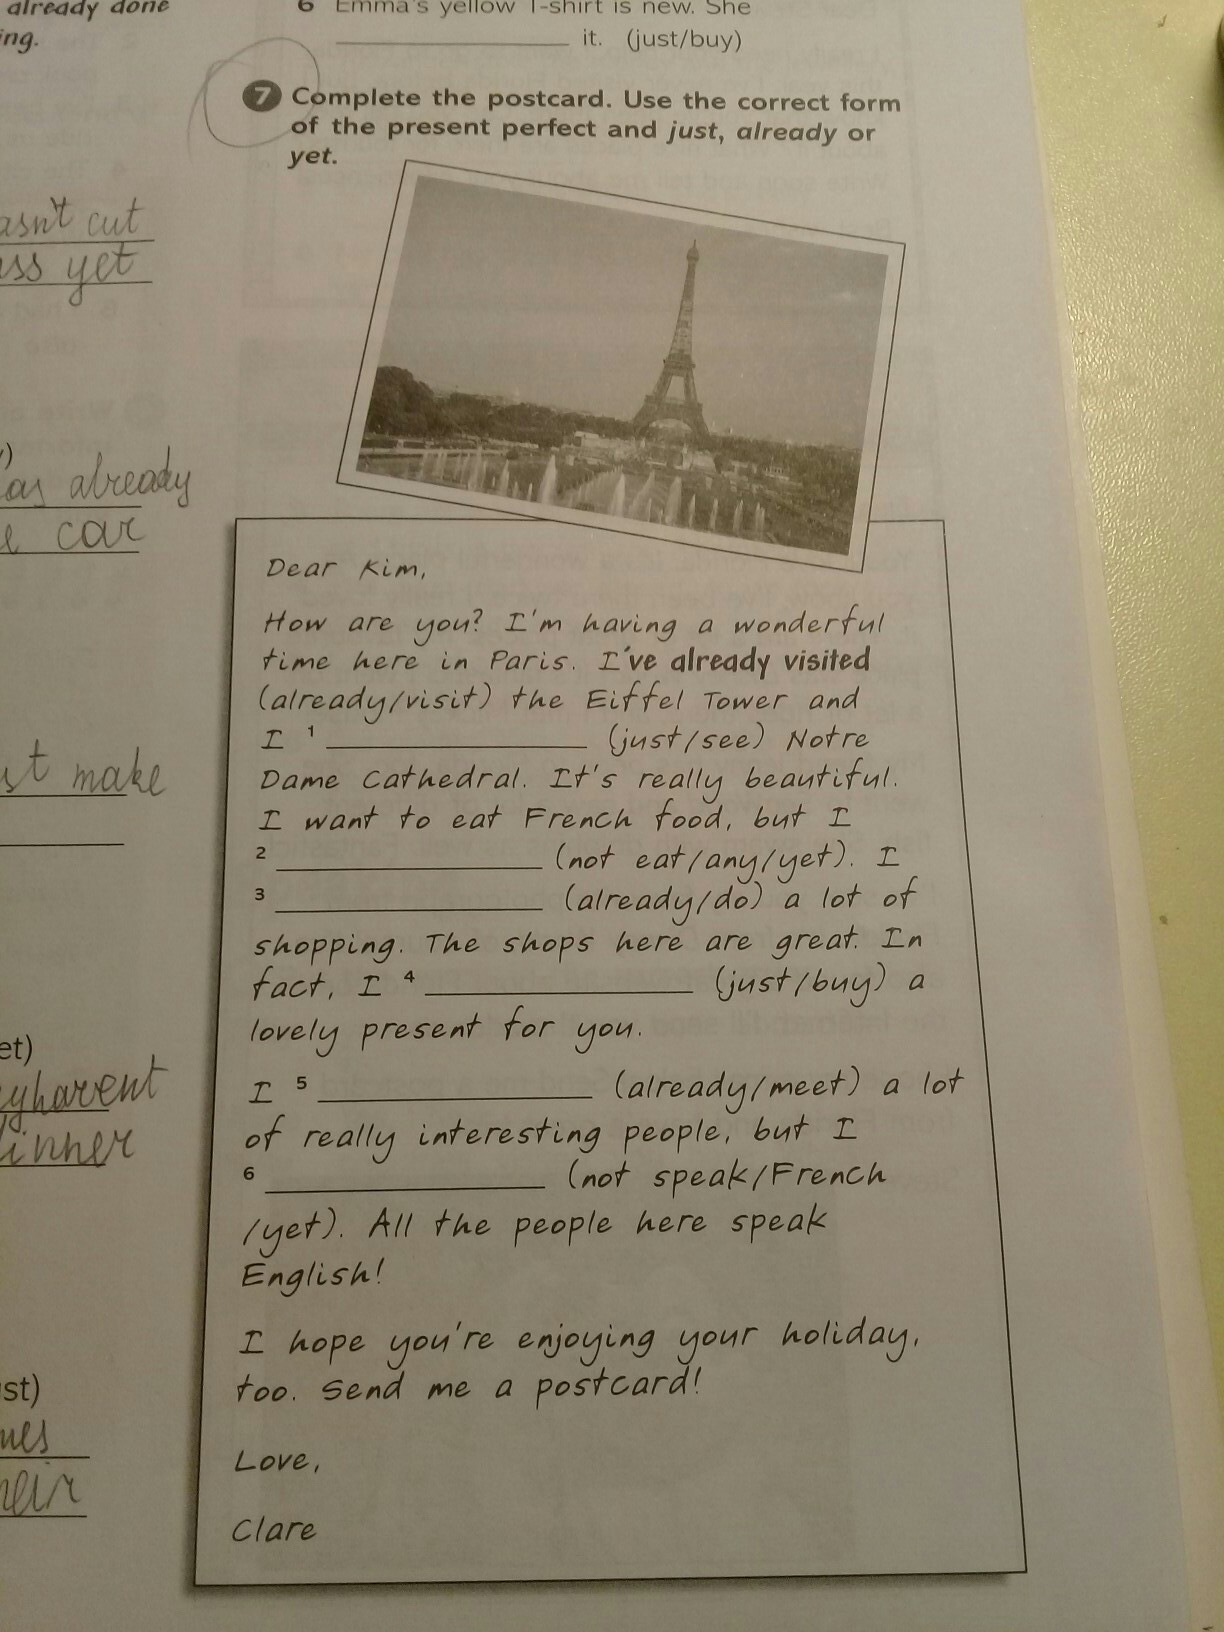 already done
ing.
asn't cut
ass yet
as already
car
st make
et)
haven't
dinner
st)
6 Emma's yellow T-shirt is new. She
it. (just/buy)
7 Complete the postcard. Use the correct form
of the present perfect and just, already or
yet.
Dear Kim,
How are you? I'm having a wonderful
time here in Paris. I've already visited
(already/visit) the Eiffel Tower and
I 1 (just/see) Notre
Dame Cathedral. It's really beautiful.
I want to eat French food, but I
2 (not eat/any/yet). I
3 (already/do) a lot of
shopping. The shops here are great. In
fact, I 4 (just/buy) a
lovely present for you.
I 5 (already/meet) a lot
of really interesting people, but I
6 (not speak/French
/yet). All the people here speak
English!
I hope you're enjoying your holiday,
too. Send me a postcard!
Love,
Clare